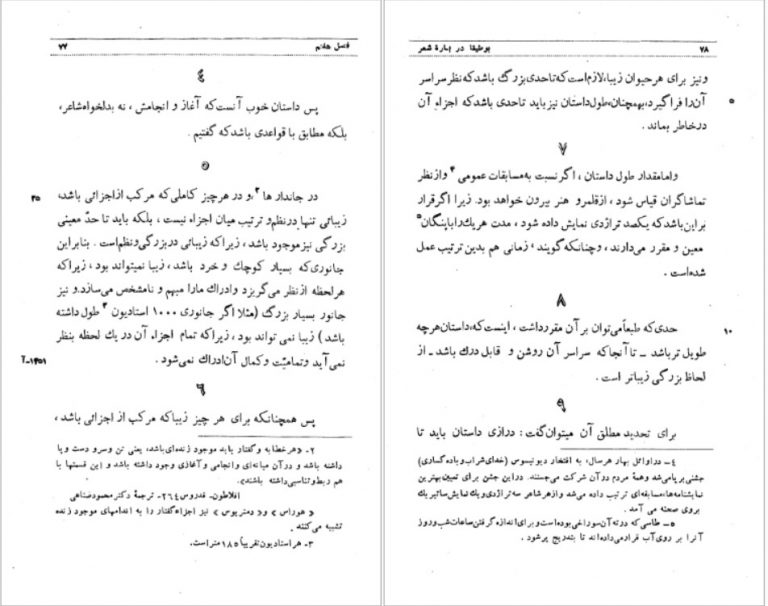 فصل هفتم ۷۷
۴
پس داستان خوب آنست که آغاز و انجامش ، نه بدلخواه شاعر،
بلکه مطابق با قواعدی باشد که گفتیم .
۵
در جاندار ها ۲ و در هر چیز کاملی که مرکب از اجزائی باشد،
۳۵
زیبائی تنها در نظم و ترتیب میان اجزاء نیست ، بلکه باید تا حدّ معینی
بزرگی نیز موجود باشد ، زیرا که زیبائی در بزرگی و نظم است . بنابراین
جانوری که بسیار کوچک و خرد باشد ، زیبا نمیتواند بود ، زیرا که
هر لحظه از نظر می گریزد و ادراک ما را مبهم و نامشخص می سازد. و نیز
جانور بسیار بزرگ (مثلا اگر جانوری ۱۰۰۰ استادیون ۳ طول داشته
باشد ) زیبا نمی تواند بود ، زیرا که تمام اجزاء آن در یک لحظه بنظر
نمی آید و تمامیّت و کمال آن ادراک نمی شود .
۱۴۵۱-آ
۶
پس همچنانکه برای هر چیز زیبا که مرکب از اجزائی باشد ،
۲- «هر خطابه و گفتار باید موجود زنده ای باشد، یعنی تن و سر و دست و پا
داشته باشد و در آن میانه ای و انجامی و آغازی وجود داشته باشد و این قسمتها با
هم ربط و تناسبی داشته باشند».
افلاطون- فدروس ۲۶۴- ترجمة دکتر محمود صناعی
« هوراس » و « دمتریوس » نیز اجزاء گفتار را به اندامهای موجود زنده
تشبیه می کنند .
۳- هر استادیون تقریباً ۱۸۵ متر است.
۷۸ بوطیقا در بارة شعر
و نیز برای هر حیوان زیبا، لازم است که تا حدی بزرگ باشد که نظر سراسر
آن را فرا گیرد، بهمچنان، طول داستان نیز باید تا حدی باشد که اجزاء آن
۵
در خاطر بماند .
۷
و اما مقدار طول داستان ، اگر نسبت به مسابقات عمومی ۴ و از نظر
تماشاگران قیاس شود ، از قلمرو هنر بیرون خواهد بود. زیرا اگر قرار
بر این باشد که یکصد تراژدی نمایش داده شود ، مدت هر یک را با پنگان ۵
معین و مقرر می دارند ، و چنانکه گویند ، زمانی هم بدین ترتیب عمل
شده است .
۸
حدی که طبعاً می توان بر آن مقرر داشت ، اینست که، داستان هر چه
۱۰
طویل تر باشد ـ تا آنجا که سراسر آن روشن و قابل درک باشد ـ از
لحاظ بزرگی زیباتر است .
۹
برای تحدید مطلق آن میتوان گفت : درازی داستان باید تا
۴ - در اوائل بهار هر سال، به افتخار دیونیسوس (خدای شراب و باده گساری)
جشنی بر پا می شد و همة مردم در آن شرکت می جستند. در این جشن برای تعیین بهترین
نمایشنامه ها، مسابقه ای ترتیب داده می شد و از هر شاعر سه تراژدی و یک نمایش ساتیریک
بروی صحنه می آمد .
۵ - طاسی که در ته آن سوراخی بوده است و برای اندازه گرفتن ساعات شب و روز
آنرا بر روی آب قرار می داده اند تا بتدریج پر شود .